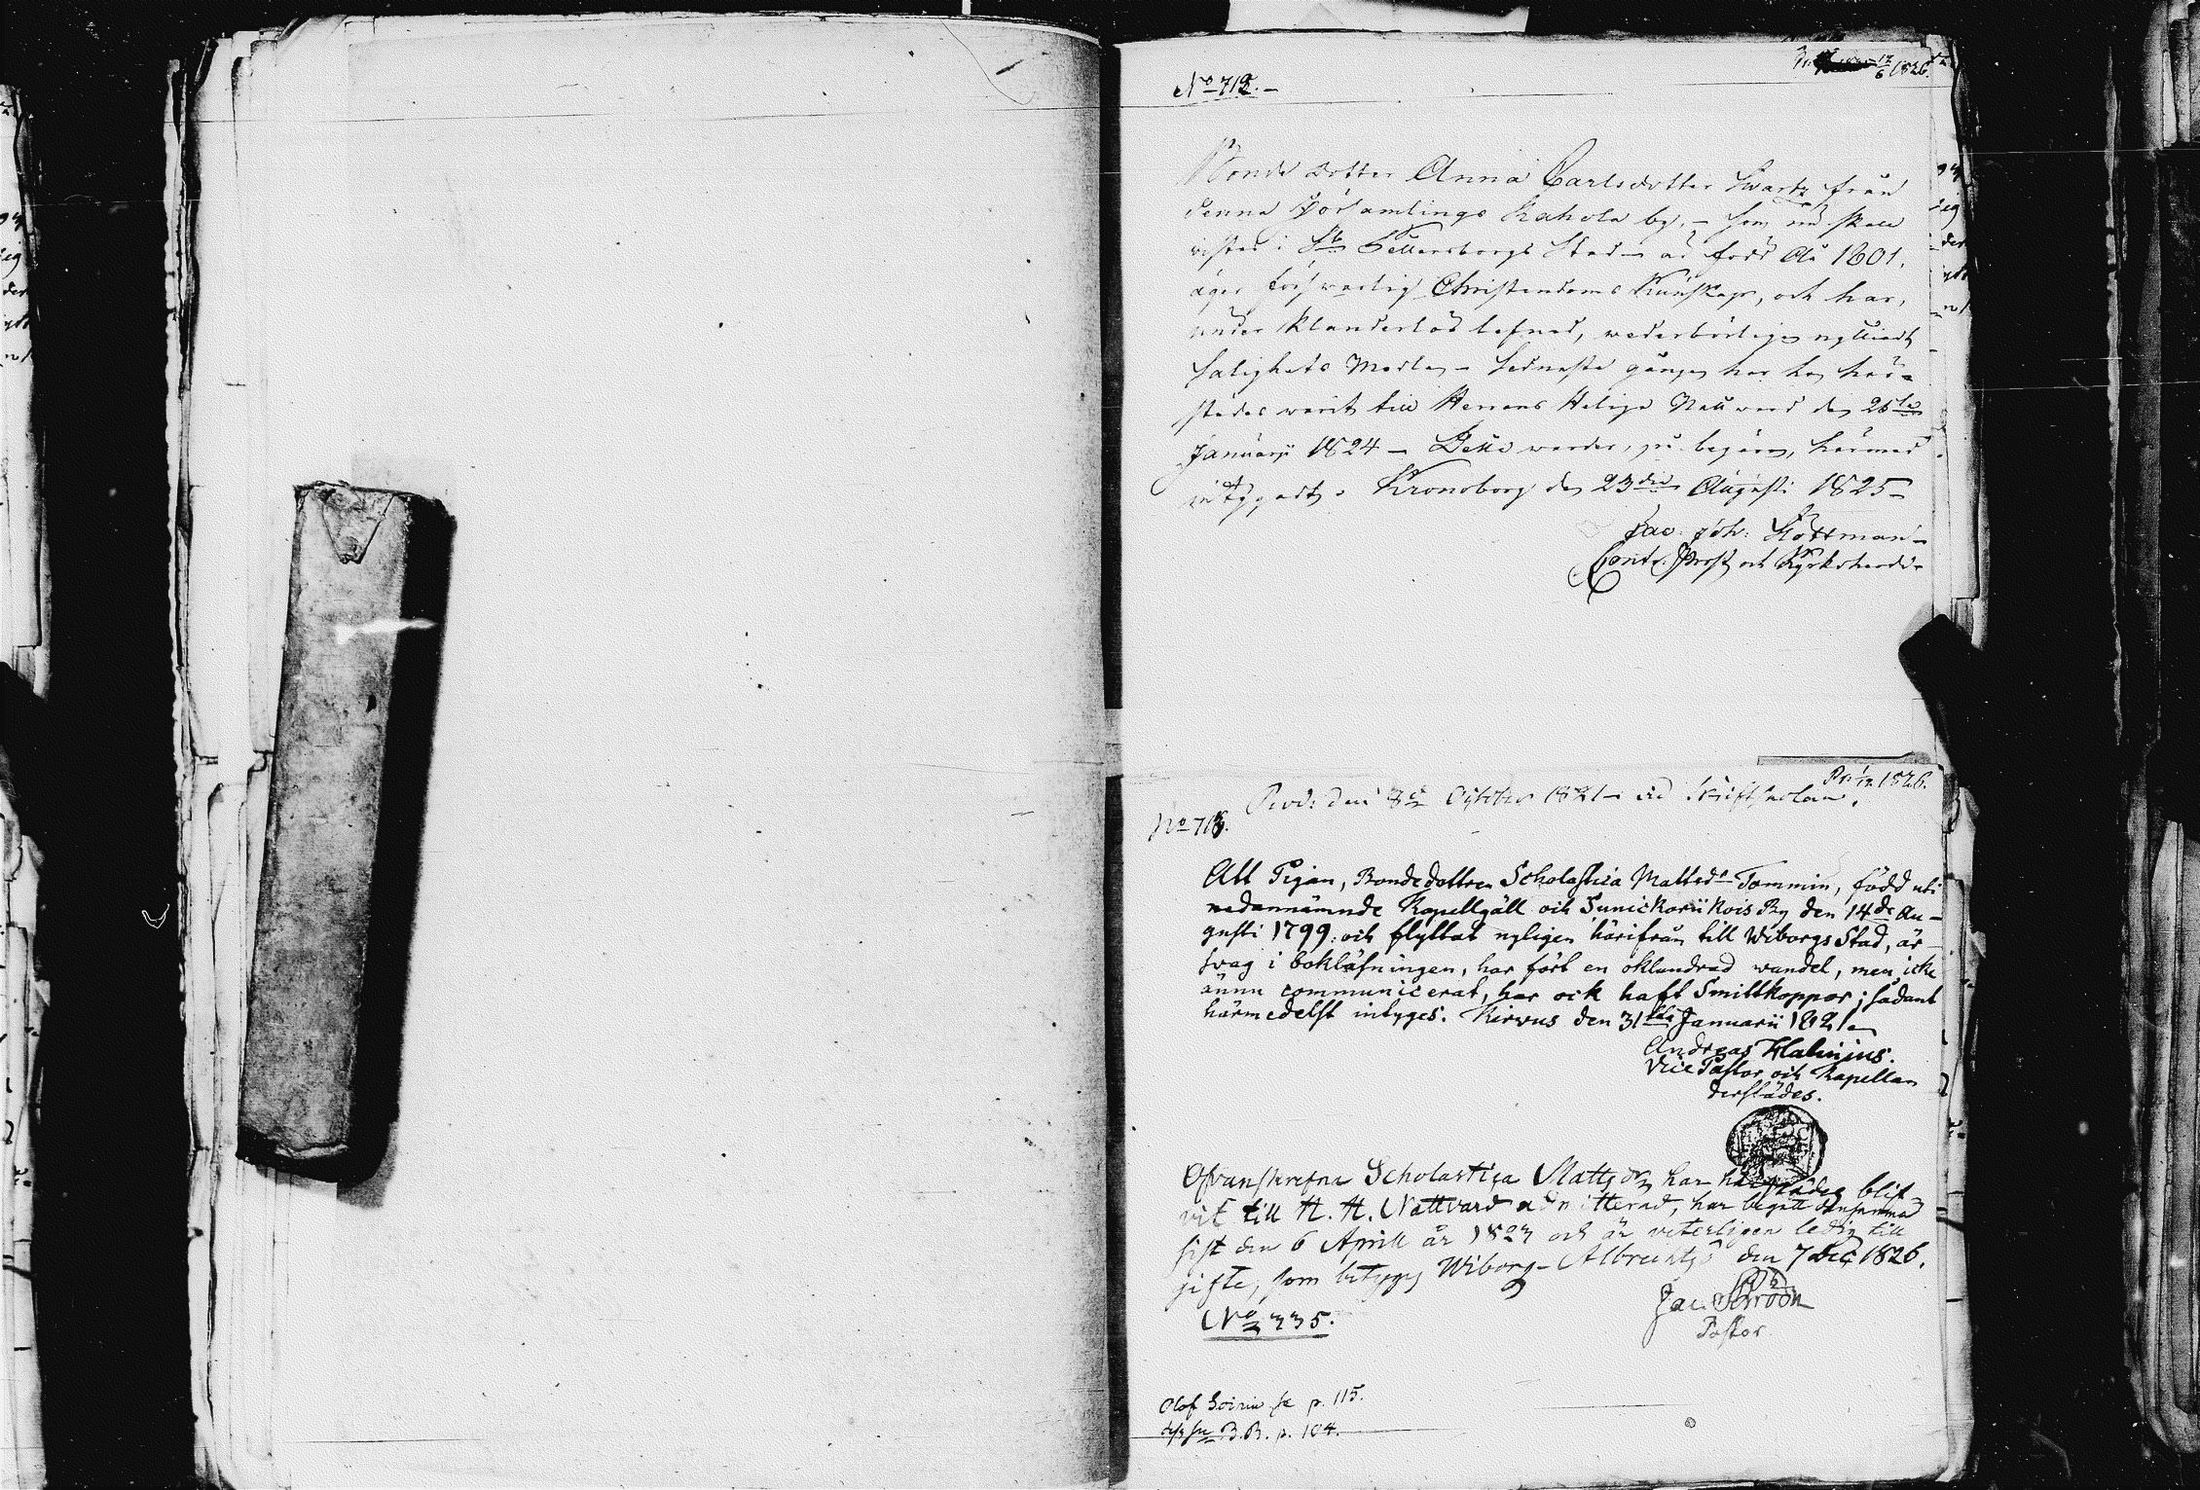 No 712.
12/6 1826.
Bonde dotter Anna Carlsdotter Swartz från
denna Församlings Rahola by, – som nu skall
vistas i St. Pettersborgs Stad – är född År 1801,
äger försvarlig Christendoms Kunskap, och har,
under klanderlös lefnad, wederbörligen nyttiadt
Salighets Medlen – Sednaste gången har hon här-
städes warit till Herrans Heliga Nattward den 26te
Januarii 1824 – Detta warder, på begäran, härmed
intygadt. Kronoborg den 23die Augusti 1825 –
Jac. Joh:
Cont. Prost och Kyrkoherde
Pr. 1/12 1826.
Prod: den 8de October 1821 – vid Skriftskolan.
No 713.
Att Pigan, Bondedottren Scholastica Mattsdr Tommin, född uti
nedannämnde Kapellgäll och By den 14de Au-
gusti 1799: och flyttat nyligen härifrån till Wiborgs Stad, är
swag i bokläsningen, har fört en oklandrad wandel, men icke
ännu communicerat, har ock haft Smittkoppor; sådant
härmedelst intyges. Kirvus den 31sta Januarii 1821 –
Andreas Halinius.
Vice Pastor och Kapellan
derstädes.
Ofvanskrefne Scholastica Mattsdr har härstädes blif-
vit till H. H. Nattvard admitterad, har begått densamma
sist den 6 Aprill år 1823 och är veterligen ledig till
gifte, som betygas Wiborg – den 7 Dec 1826.
Jac.
Pastor
No 335.
Olof p. 115.
B.B. p. 104.